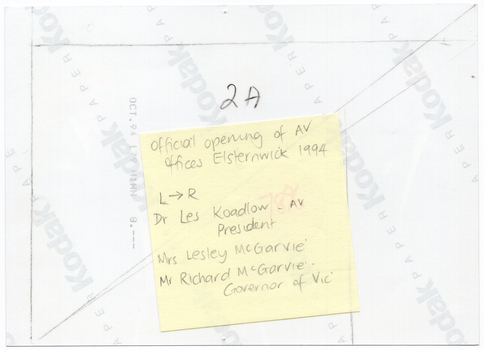 2A
Official opening of AV
offices Elsternwick 1994
L → R
Dr Les Koadlow - AV
President
Mrs Lesley McGarvie
Mr Richard McGarvie -
Governor of Vic
Kodak PAPER
Kodak PAPER
Kodak PAPER
Kodak PAPER
OCT.94